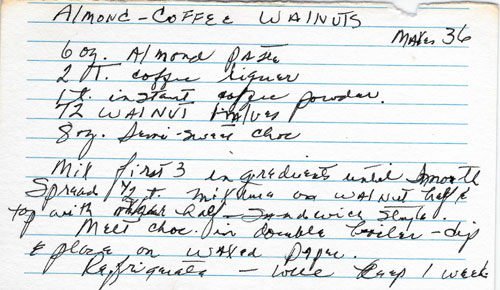 ALMOND-COFFEE WALNUTS
MAKES 36
6 oz. Almond PASTE
2 T. coffee liquer
1 t. instant coffee powder.
72 WALNUT HALVES
8 oz. Semi-sweet choc
Mix first 3 ingredients until smooth
Spread 1/2 t. mixture on WALNUT half &
top with other half - sandwich style.
Melt choc. in double boiler - dip
& place on waxed paper.
Refrigerate - will keep 1 week